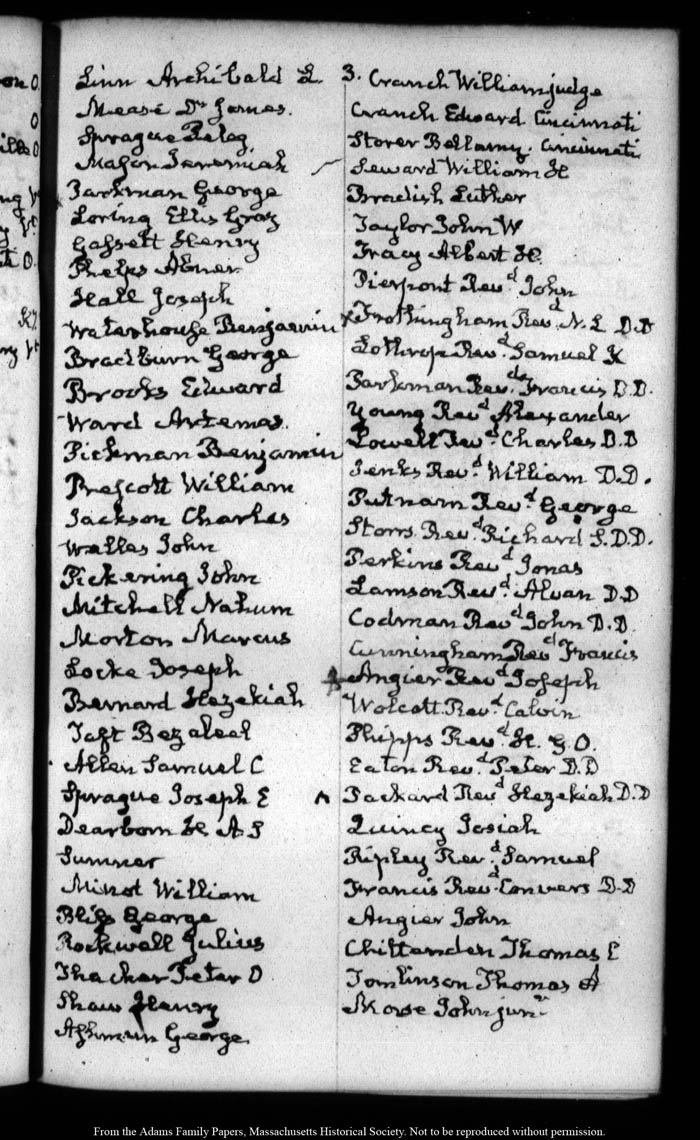 on O.
O
ills O
ng Vt
y Vt.
t O.
Ky.
ny Vt
Linn Archibald L.
Mease Dr. James.
Sprague Peleg
Mason Jeremiah
Parkman George
Loring Ellis Gray
Gassett Henry
Phelps Abner
Hall Joseph
Waterhouse Benjamin
Bradburn George
Brooks Edward
Ward Artemas.
Pickman Benjamin
Prescott William
Jackson Charles
Walles John
Pickering John
Mitchell Nahum
Morton Marcus
Locke Joseph
Bernard Hezekiah
Taft Bezaleel
Allen Samuel C
Sprague Joseph E
Dearborn H. A. S
Sumner
Minot William
Bliss George
Rockwell Julius
Thacher Peter O
Shaw Henry
Ashmun George.
3. Cranch William judge
Cranch Edward. Cincinnati
Storer Bellamy. Cincinnati
Seward William H
Bradish Luther
Taylor John W
Tracy Albert H.
Pierpont Revd. John
x Frothingham Revd. N. L. D.D
Lothrop Revd. Samuel K
Parkman Revd. Francis D.D.
Young Revd Alexander
Lowell Revd. Charles D.D
Jenks Revd. William D.D.
Putnam Revd. George
Storrs Revd. Richard S. D.D.
Perkins Revd. Jonas
Lamson Revd. Alvan D.D
Codman Revd John D.D.
Cunningham Revd Francis
Angier Revd Joseph
Wolcott Revd. Calvin
Phipps Revd. H. G. O.
Eaton Revd. Peter D.D
^ Packard Revd Hezekiah D.D
Quincy Josiah
Ripley Revd. Samuel
Francis Revd. Convers D.D
Angier John
Chittenden Thomas E
Tomlinson Thomas A
Morse John junr
From the Adams Family Papers, Massachusetts Historical Society. Not to be reproduced without permission.